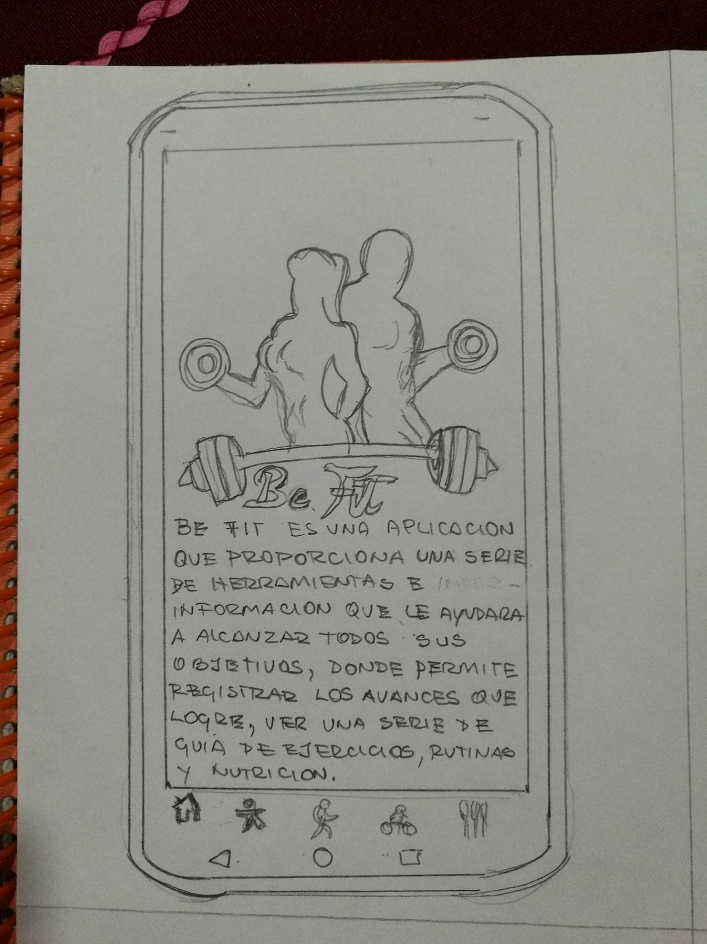 Be Fit
BE FIT ES UNA APLICACION
QUE PROPORCIONA UNA SERIE
DE HERRAMIENTAS E INFOR-
INFORMACION QUE LE AYUDARA
A ALCANZAR TODOS SUS
OBJETIVOS, DONDE PERMITE
REGISTRAR LOS AVANCES QUE
LOGRE, VER UNA SERIE DE
GUIA DE EJERCICIOS, RUTINAS
Y NUTRICION.